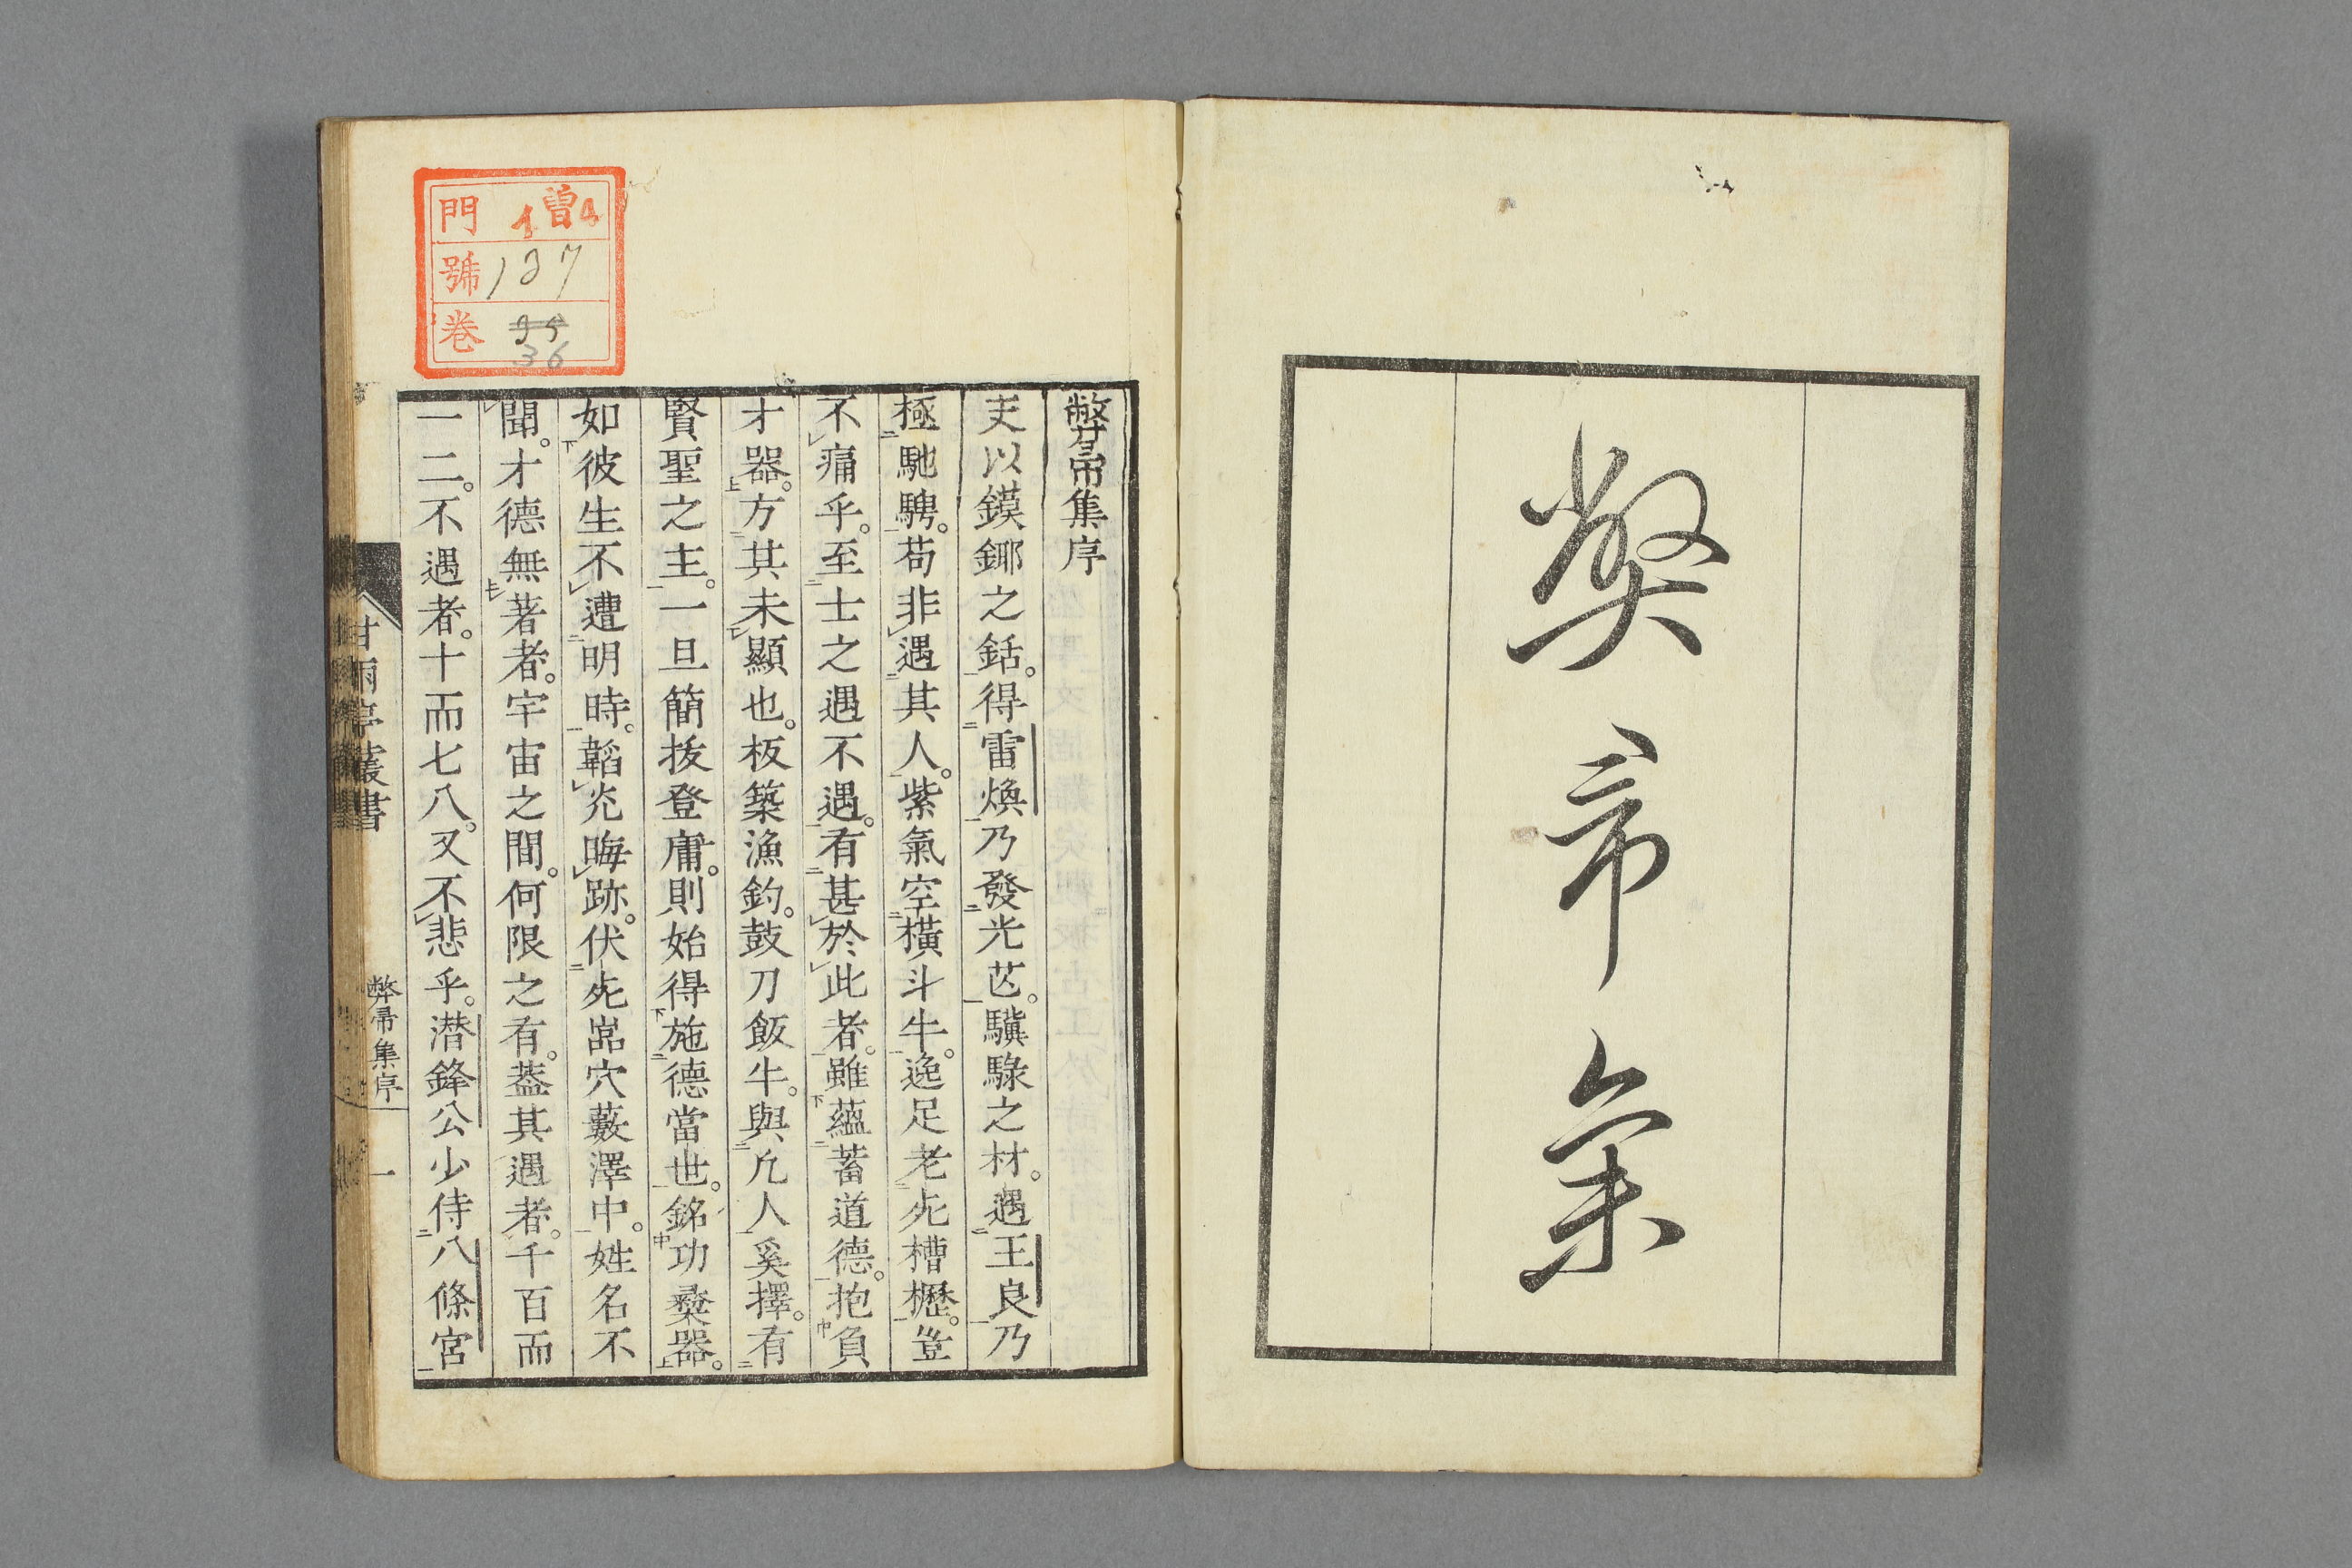 獘帚集
弊帚集序
夫以鏌鎁之銛。得雷煥乃發光芒。驥騄之材。遇王良乃
極馳騁。苟非遇其人。紫氣空橫斗牛。逸足老死槽櫪。豈
不痛乎。至士之遇不遇。有甚於此者。雖蘊蓄道德。抱負
才器。方其未顯也。板築漁釣。鼓刀飯牛。與凡人奚擇。有
賢聖之主。一旦簡拔登庸。則始得施德當世。銘功彛器。
如彼生不遭明時。韜光晦跡。伏死嵓穴藪澤中。姓名不
聞。才德無著者。宇宙之間。何限之有。蓋其遇者。千百而
一二。不遇者。十而七八。又不悲乎。潜鋒公少侍八條宮
甘雨亭叢書
弊帚集序
一
門 曽 4 1
號 137
卷 35
36